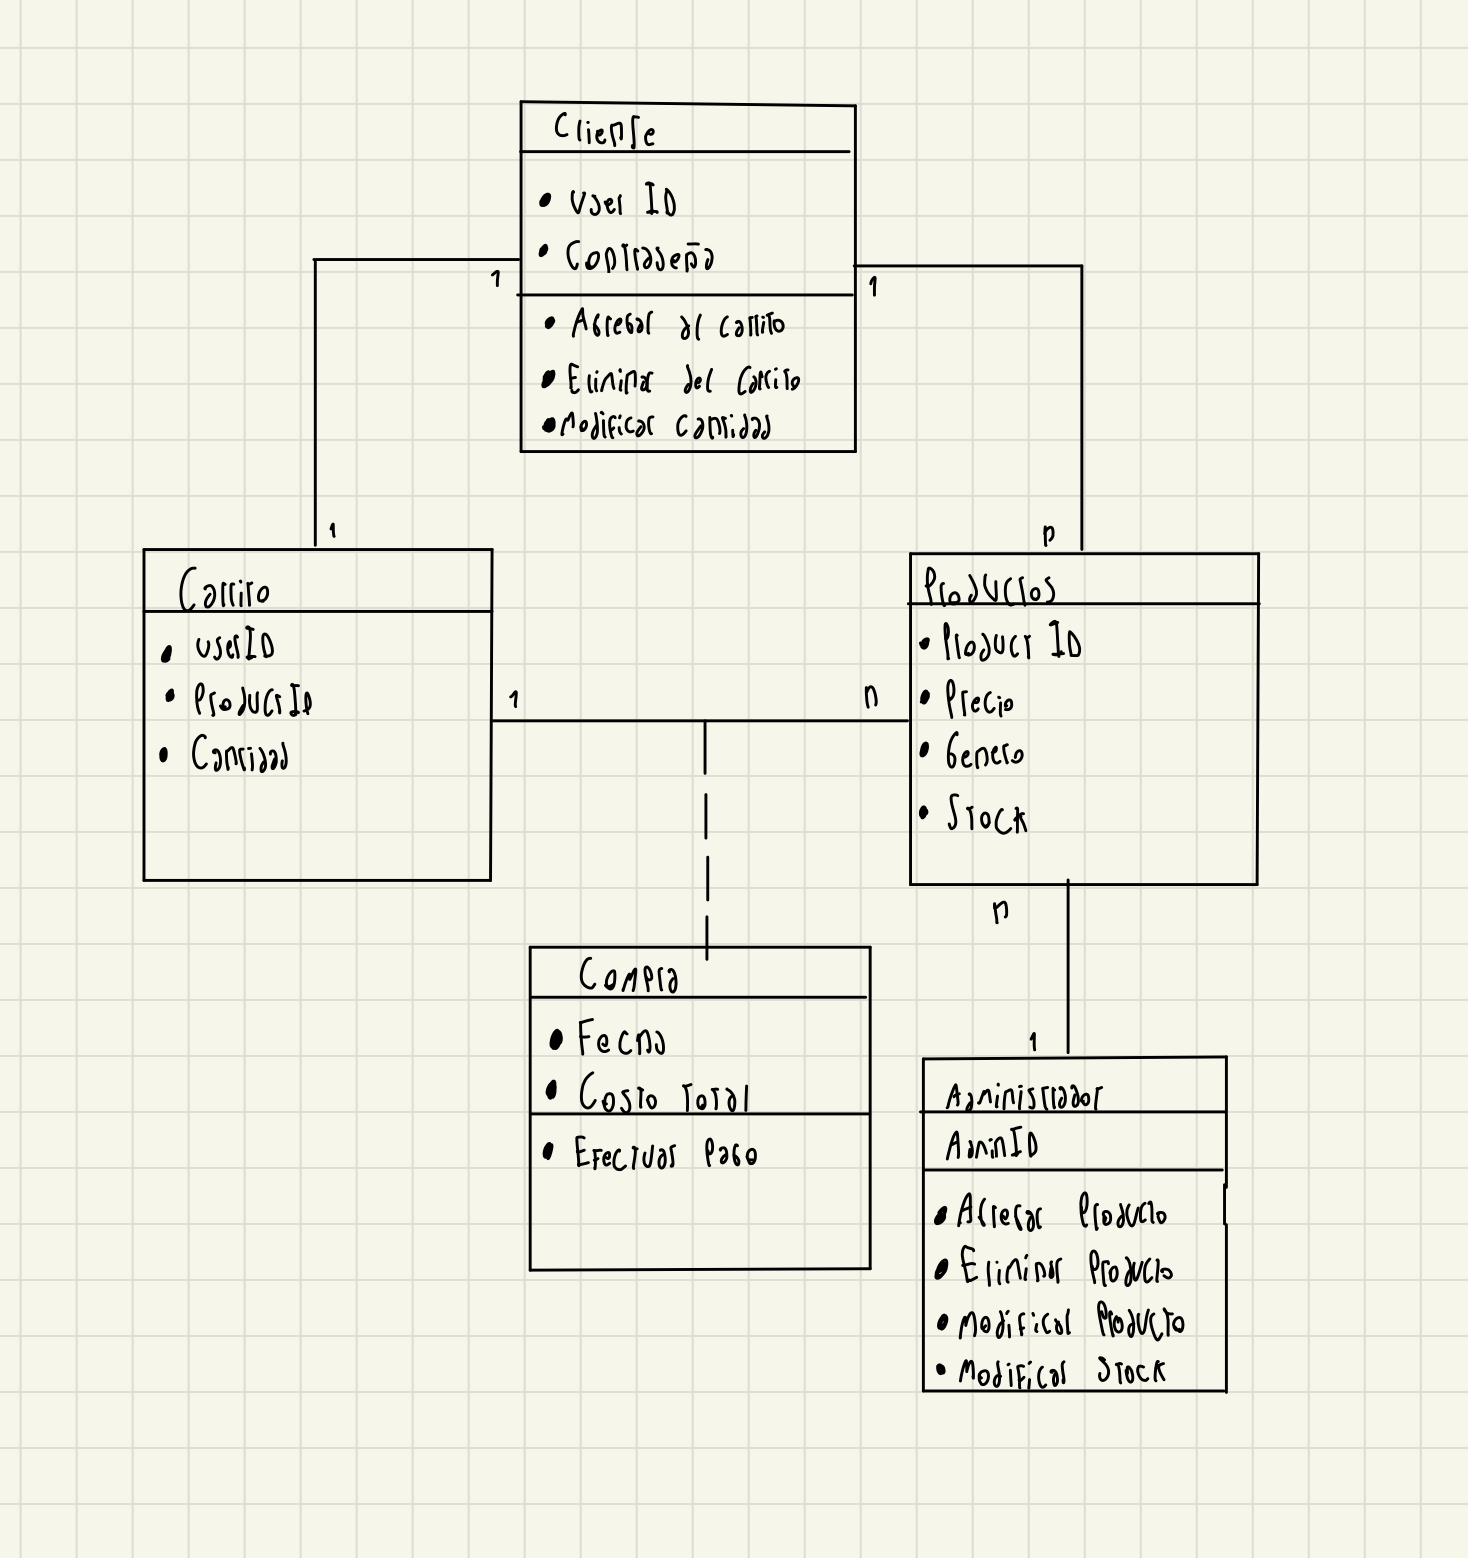 Cliente
• User ID
• Contraseña
1
1
• Agregar al carrito
• Eliminar del Carrito
• Modificar Cantidad
1
n
Carrito
• userID
• ProductID
• Cantidad
Productos
• Product ID
• Precio
• Genero
• Stock
1
n
n
1
Compra
• Fecha
• Costo Total
• Efectuar Pago
Administrador
AdminID
• Agregar Producto
• Eliminar Producto
• Modificar Producto
• Modificar Stock